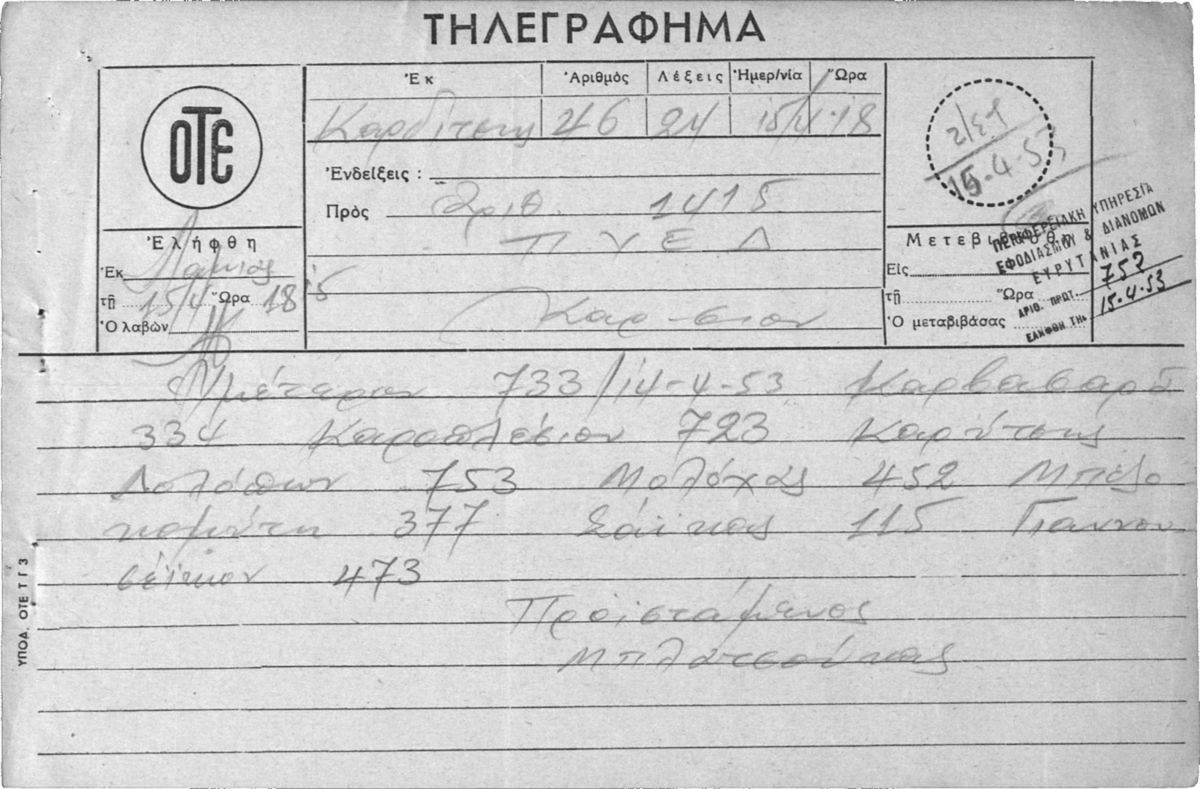 ΤΗΛΕΓΡΑΦΗΜΑ
ΟΤΕ
Ἐκ Ἀριθμὸς Λέξεις Ἡμερ/νία Ὥρα
Καρδίτσης 46 24 15/4 18
Ἐνδείξεις :
Πρὸς Ἀριθ. 1415
Π Υ Ε Δ
Καρ-σιον
Ἐλήφθη
Ἐκ Λαμίας
τῇ 15/4 Ὥρα 18 15
Ὁ λαβὼν
15-4-53
Μετεβιβάσθη
Εἰς
τῇ Ὥρα
Ὁ μεταβιβάσας
ΠΕΡΙΦΕΡΕΙΑΚΗ ΥΠΗΡΕΣΙΑ
ΕΦΟΔΙΑΣΜΟΥ & ΔΙΑΝΟΜΩΝ
ΕΥΡΥΤΑΝΙΑΣ
ΑΡΙΘ. ΠΡΩΤ. 752
ΕΛΗΦΘΗ ΤΗι 15-4-53
Ἡμέτερον 733/14-4-53 Καρβασαρᾶ
334 Καροπλέσιον 723 Καρύτσης
Δολόπων 753 Μολόχας 452 Μπεζο
κομύτη 377 Σάϊκας 115 Γιαννου
σέϊκον 473
Προϊστάμενος
Μπλατσούκας
ΥΠΟΔ. ΟΤΕ Τ Γ 3